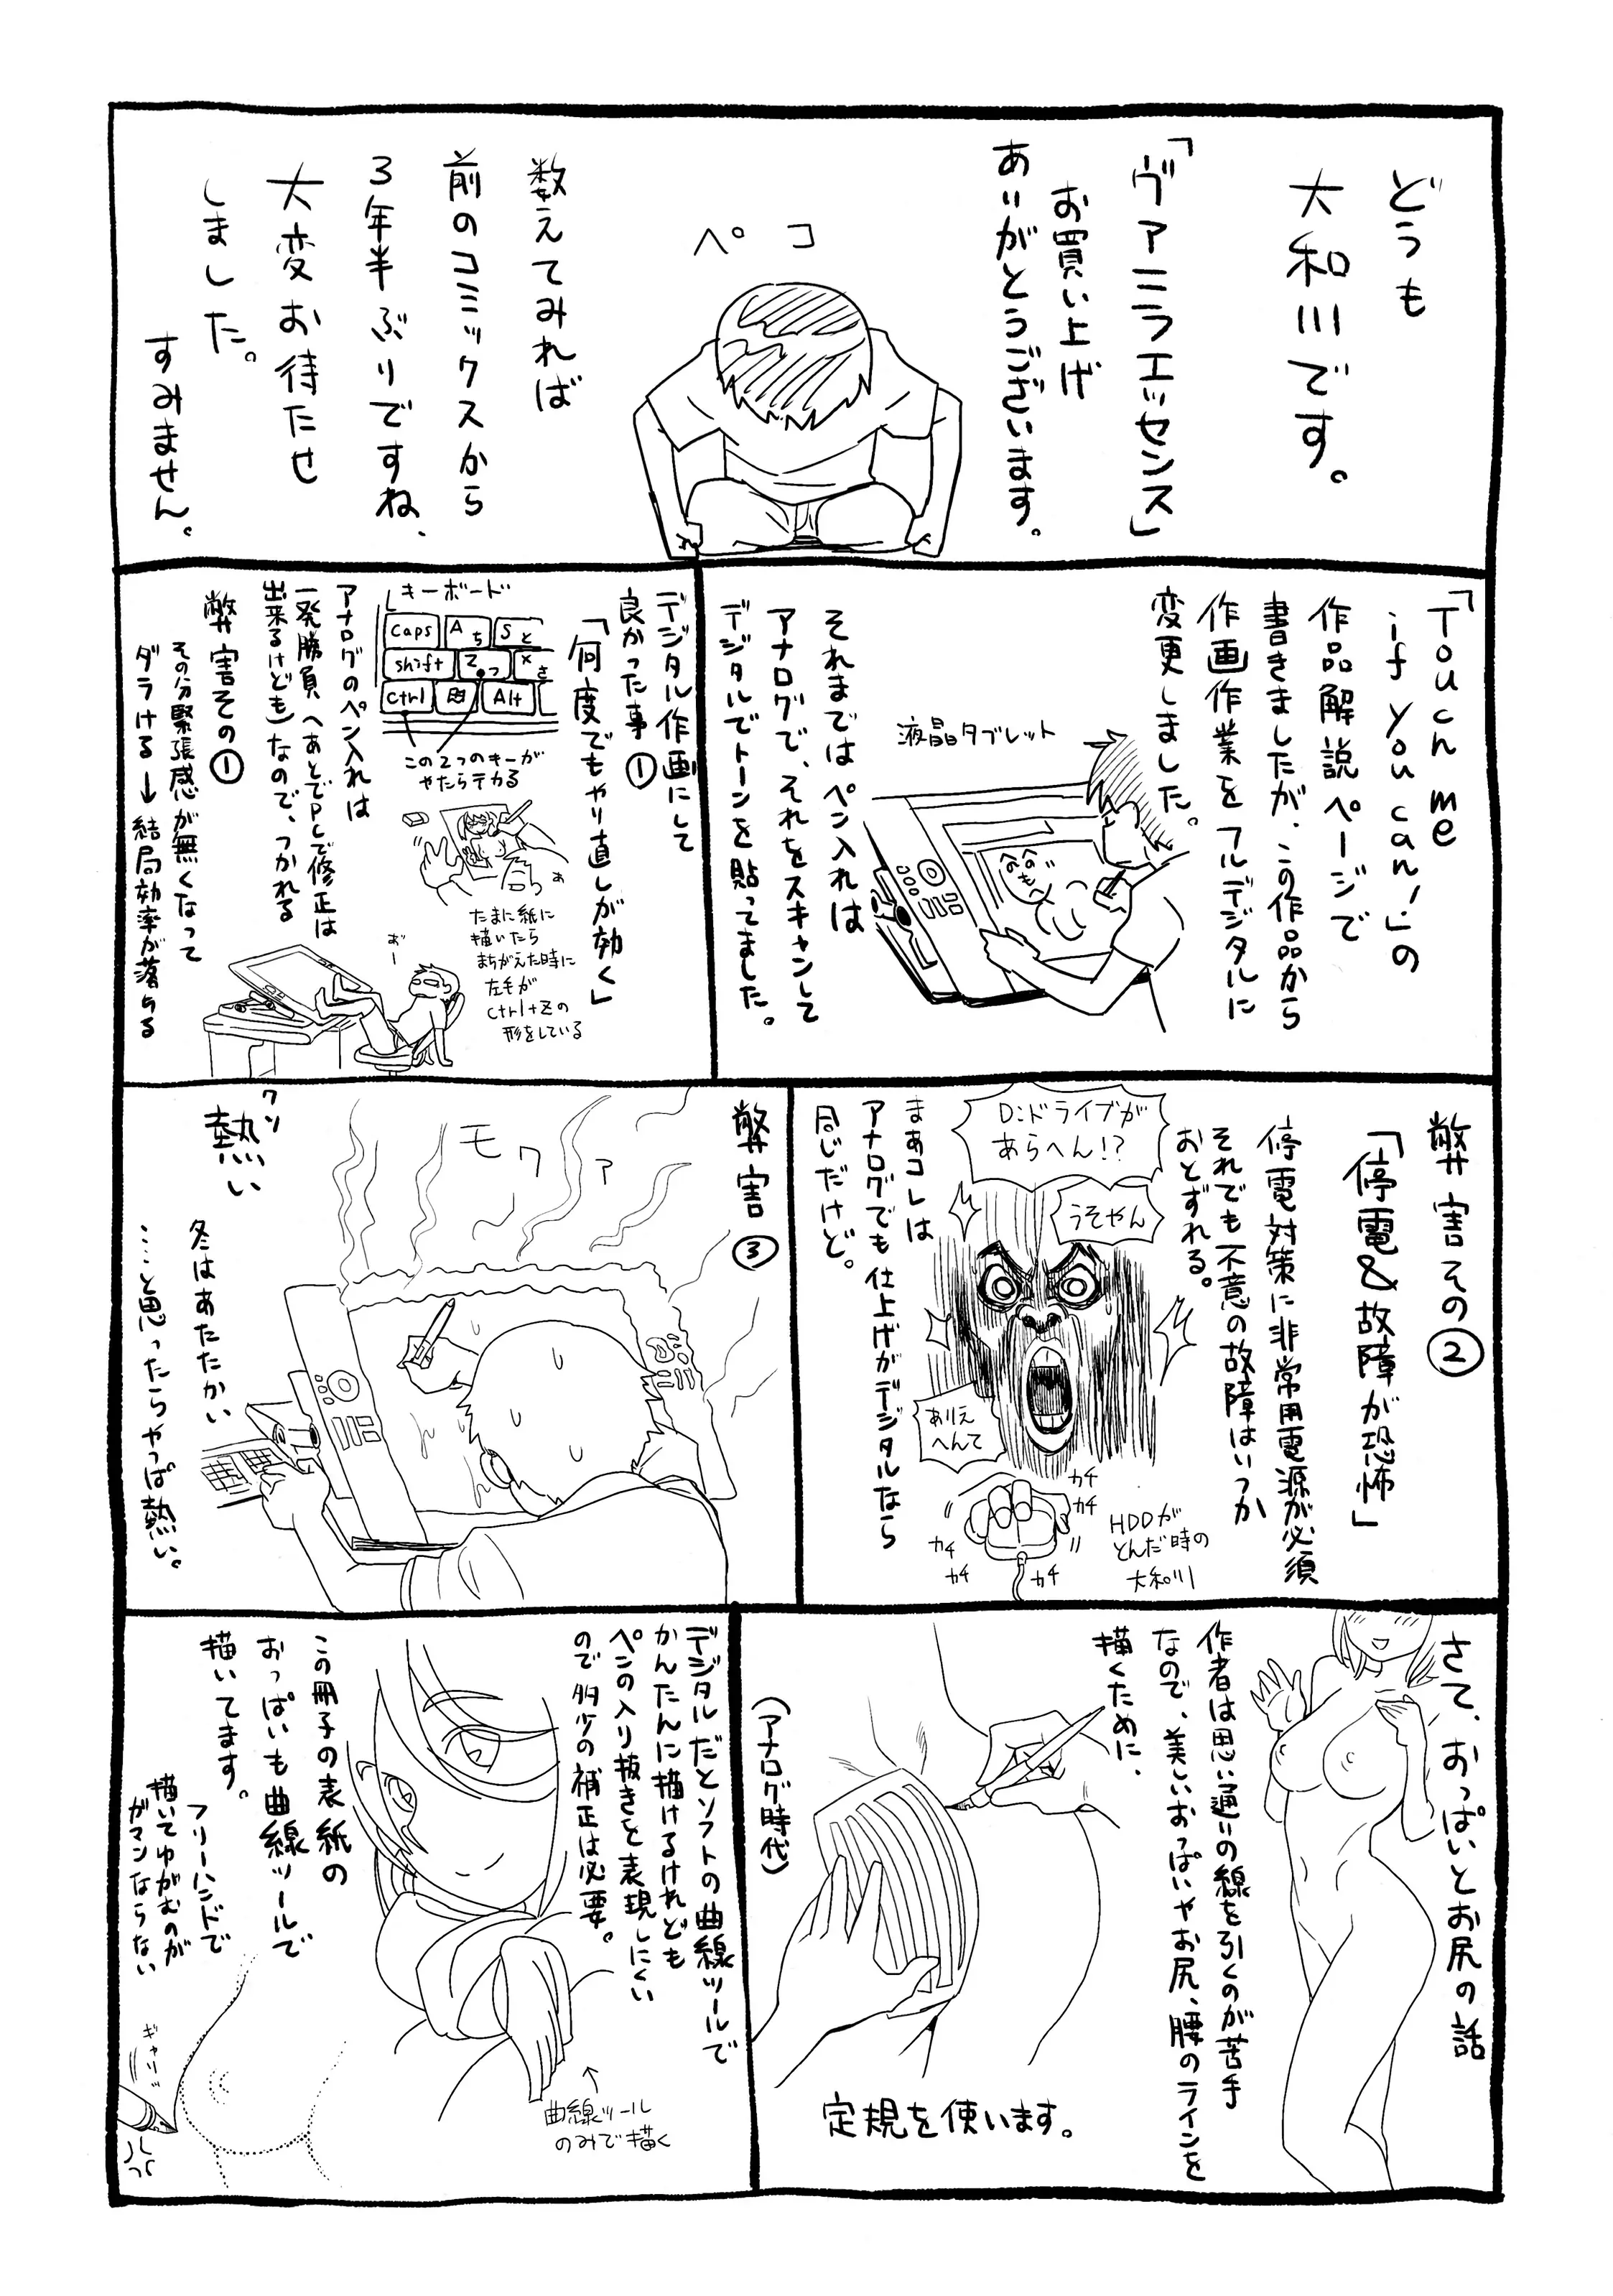 どうも
大和川です。
「ヴァニラエッセンス」
お買い上げ
ありがとうございます。
ペコ
数えてみれば
前のコミックスから
3年半ぶりですね、
大変お待たせ
しました。
すみません。
「Touch me
if you can!」の
作品解説ページで
書きましたが、この作品から
作画作業をフルデジタルに
変更しました。
液晶タブレット
それまではペン入れは
アナログで、それをスキャンして
デジタルでトーンを貼ってました。
デジタル作画にして
良かった事①
「何度でもやり直しが効く」
キーボード
Caps
Aち
Sと
shift
Zっ
Xさ
Ctrl
Alt
この2つのキーが
やたらテカる
アナログのペン入れは
一発勝負(あとでPCで修正は
出来るけども)なので、つかれる
たまに紙に
描いたら
まちがえた時に
左手が
Ctrl+Zの
形をしている
弊害その①
その分緊張感が無くなって
ダラける→結局効率が落ちる
弊害その②
「停電&故障が恐怖」
停電対策に非常用電源が必須
それでも不意の故障はいつか
おとずれる。
D:ドライブが
あらへん!?
うそやん
ありえ
へんて
カチ
カチ
カチ
カチ
カチ
HDDが
とんだ時の
大和川
まあコレは
アナログでも仕上げがデジタルなら
同じだけど。
弊害③
モワァ
クソ
熱い
冬はあたたかい
……と思ったらやっぱ熱い。
さて、おっぱいとお尻の話
作者は思い通りの線を引くのが苦手
なので、美しいおっぱいやお尻、腰のラインを
描くために、
(アナログ時代)
定規を使います。
デジタルだとソフトの曲線ツールで
かんたんに描けるけれども
ペンの入り抜きを表現しにくい
ので多少の補正は必要。
この冊子の表紙の
おっぱいも曲線ツールで
描いてます。
↑
曲線ツール
のみで描く
フリーハンドで
描いてゆがむのが
ガマンならない
ギャリッ